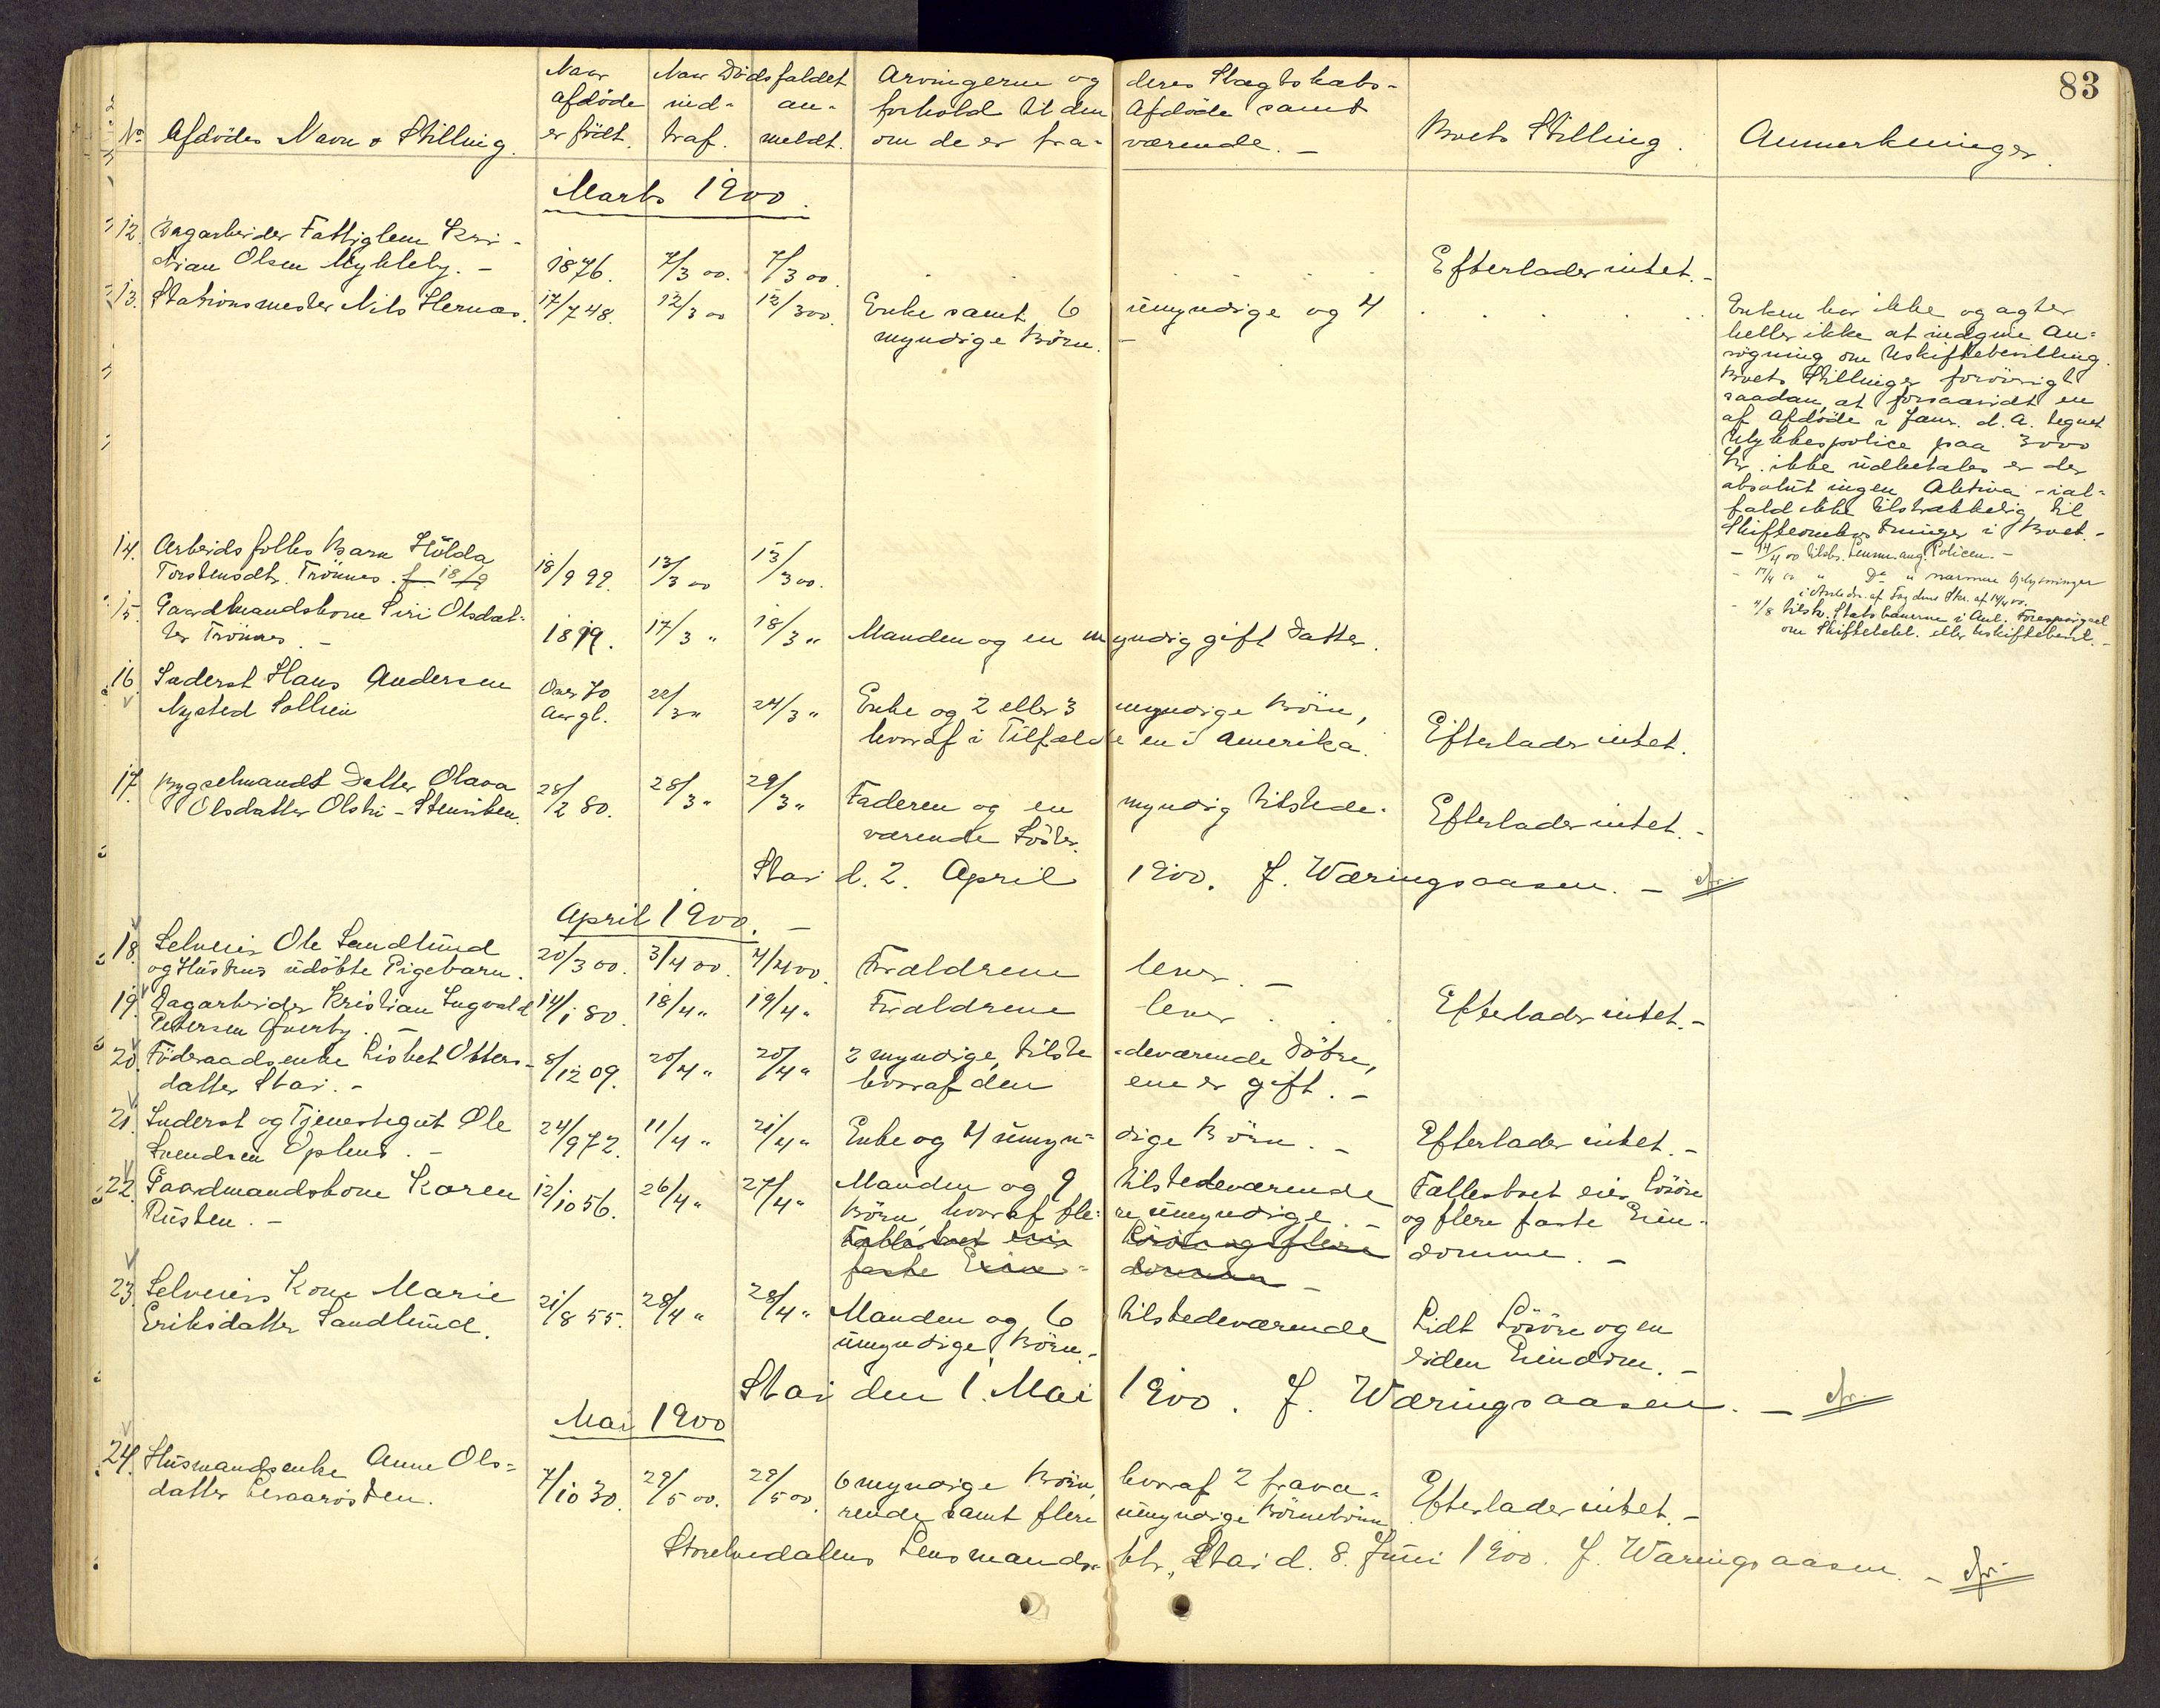 83
No Afdödes Navn & Stilling.
Naar afdöde er födt.
Naar Dödsfaldet ind- traf.
an- meldt.
Arvingerne og deres Slægtskabs-
forhold til den Afdöde samt
om de er fra- værende. -
Boets Stilling.
Anmerkninger.
Marts 1900.
12. Dagarbeider Fattiglem Kri-
stian Olsen Mykleby. - 1876. 7/3 00. 7/3 00. Efterlader intet. -
13. Stationsmester Nils Hernæs. 17/7 48. 12/3 00 12/3 00. Enke samt 6 umyndige og 4
myndige Börn. -
Enken har ikke og agter
heller ikke at indgive An-
søgning om Uskiftebevilling.
Boets Stilling forövrigt
saadan, at forsaavidt en
af Afdöde i Janr. d. A. tegnet
Ulykkespolice paa 3000
Kr. ikke udbetales er der
absolut ingen Aktiva - ial-
fald ikke tilstrækkelig til
Skifteomkostninger i Boet. -
- 14/4 00 tilskr. Lensm. ang. Policen. -
- 17/4 00 " Do " nærmere Oplysninger
af 14/4 00.
- 4/8 tilskr. Statsbanerne i Anl. Forespörgsel
om Skiftebehl. eller Uskiftebevil. -
14. Arbeidsfolks Barn Hulda
Torstensdtr. Trönnes. f 18/9 18/9 99. 13/3 00 13/3 00.
15. Gaardmandskone Siri Olsdat-
ter Trönnes - 1819. 17/3 " 18/3 " Manden og en myndig gift Datter.
16. Inderst Hans Andersen Over 70
Nysted Sollien Aar gl. 22/3 " 24/3 " Enke og 2 eller 3 myndige Börn,
hvoraf i Tilfælde en i Amerika. Efterlader intet.
17. Bygselmands Datter Olava
Olsdatter Olstri - Stenviken. 28/2 80. 28/3 " 29/3 " Faderen og en myndig tilstede-
værende Söster. Efterlader intet. -
Stai d. 2. April 1900. J. Wæringsaasen. -
April 1900. -
18. Selveier Ole Sandlund
og Hustrus udöbte Pigebarn. 20/3 00. 3/4 00. 4/4 00. Forældrene lever. -
19. Dagarbeider Kristian Ingvald
Petersen Qverby. - 14/1 80. 18/4 " 19/4 " Forældrene lever. Efterlader intet. -
20. Föderaadsenke Lisbet Otters-
datter Stai. - 8/12 09. 20/4 " 20/4 " 2 myndige, tilste-deværende Döttre,
hvoraf den ene er gift. -
21. Inderst og Tjenestegut Ole
Svendsen Ophus. - 24/9 72. 11/4 " 21/4 " Enke og 4 umyn- dige Börn. - Efterlader intet. -
22. Gaardmandskone Karen
Rusten. - 12/10 56. 26/4 " 27/4 " Manden og 9 tilstedeværende Fællesboet eier Lösöre
Börn, hvoraf fle- re umyndige. - og flere faste Eien-
Fællesboet eier Lösöre og flere domme. -
faste Eien- domme -
23. Selveiers Kone Marie
Eriksdatter Sandlund. 21/8 55. 28/4 " 28/4 " Manden og 6 tilstedeværende Lidt Lösöre og en
umyndige Börn. - liden Eiendom. -
Stai den 1. Mai 1900. J. Wæringsaasen. -
Mai 1900
24. Husmandsenke Anne Ols-
datter 7/10 30. 29/5 00. 29/5 00. 6 myndige Börn, hvoraf 2 fravæ-
rende samt flere umyndige Börnebörn Efterlader intet. -
Storelvedalens Lensmands- btr., Stai d. 8. Juni 1900. J. Wæringsaasen. -